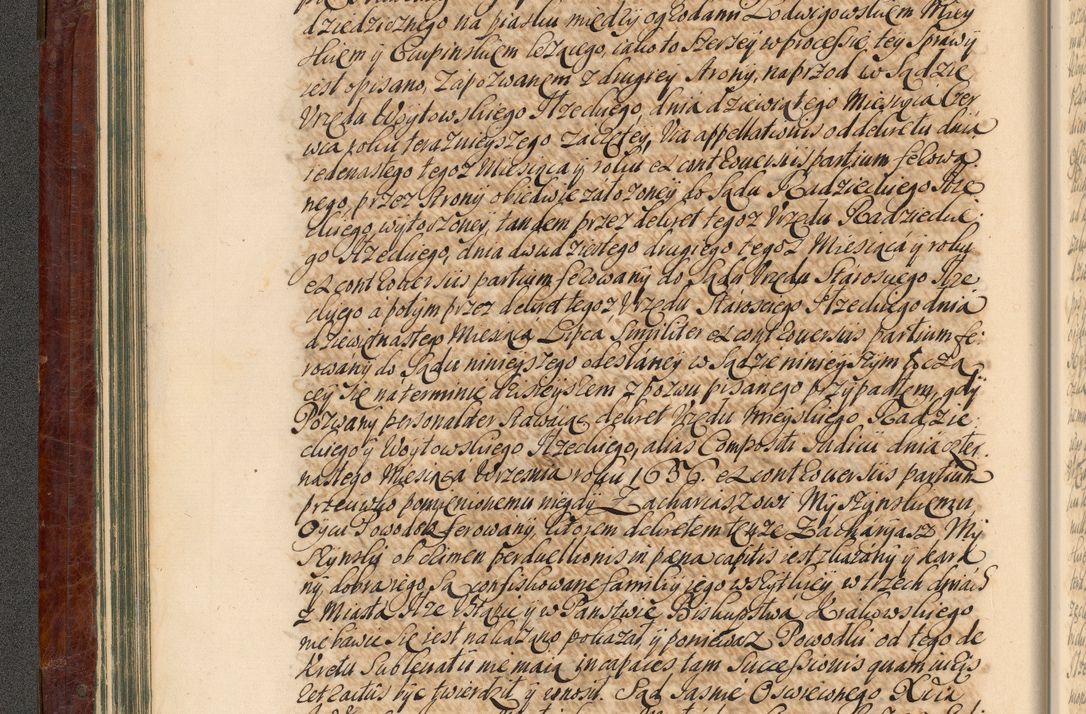 dziedzicznego na piasku między ogrodami Lodwigowskiem Miey
skiem y Czupinskiem lezącego, iako to szerzey w processie tey sprawy
iest opisano, Zapozwanem z drugiey strony, naprzod w Sądzie
Vrzędu Woytowskiego Ilzeckiego, dnia dziewiątego Miesiąca Czer
wca roku teraznieyszego zaczętey, Via appellationis od dekretu dnia
iedenastego tegoz Miesiąca y roku ex controversiis partium ferowa
nego, przez strony obiedwie założoney do Sądu Radzieckiego Ilze
ckiego, wytoczoney, tandem przez dekret tegoz Vrzędu Radzieckie
go Ilzeckiego, dnia dwudziestego drugiego tegoz Miesiąca y roku
ex controversiis partium ferowany do Sądu Vrzędu Staroscego Ilze
ckiego a potym przez dekret tegoz Vrzędu Starosciego Ilzeckiego dnia
dziewiętnastego Miesiąca Lipca similiter ex controversiis partium fe
rowany do Sądu ninieyszego odesłaney w Sądzie ninieyszym toczą
cey się na terminie dzisieyszem z pozwu pisanego przypadłem, gdy
Pozwany personaliter stawaiąc dekret Vrzędu Mieyskiego Radzie
ckiego y Woytowskiego Ilzeckiego, alias Compositi Iudicii dnia czter
nastego Miesiąca Wrzesnia roku 1636. ex controversiis partium
przeciwko pomienionemu niegdy Zachariaszowi Myszynskiemu
Oycu Powodok ferowany, ktorem dekretem tenze Zacharyasz My
szynski ob crimen perduellionis in pæna capitis iest skazany y kara
ny, dobra iego są konfiskowane familiy iego wszytkiey w trzech dniach
z Miasta Ilze ustąpic y w Panstwie Biskupstwa Krakowskiego
nie bawic się iest nakazano, pokazał, y poniewaz Powodki od tego de
kretu sublevatii nie maią incapaces tam Successionis quam iuris
et actus byc twierdził y wnosił. Sąd Iasnie Oswieconego Xcia